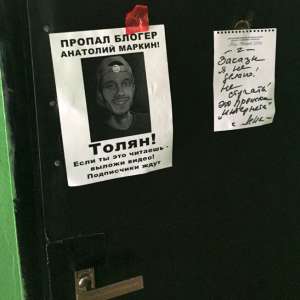 ПРОПАЛ БЛОГЕР
АНАТОЛИЙ МАРКИН!
Толян!
Если ты это читаешь -
выложи видео!
Подписчики ждут
- 2 -
Заказы
я не
делаю.
не
стучать
это происки
"интернета"